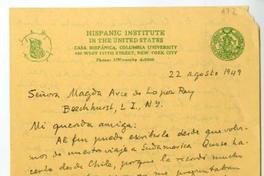 HISPANIC INSTITUTE
IN THE UNITED STATES
CASA HISPÁNICA, COLUMBIA UNIVERSITY
435 WEST 117TH STREET, NEW YORK CITY
22 agosto 1949
Señora Magda Arce de
Beechhurst, L I, N.Y.
Mi querida amiga:
Al fin puedo escribirle desde que volvi-
mos de nuestro viaje a Sudamérica. Quise ha-
cerlo desde Chile, porque la recordé mucho
me preguntaban